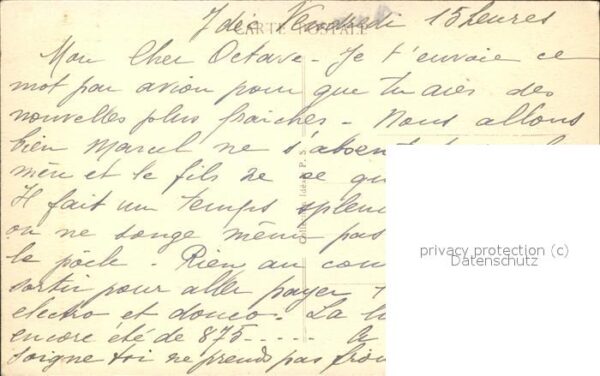 7 déc Vendredi 15 heures
CARTE POSTALE
Mon cher Octave - Je t'envoie ce
mot par avion pour que tu aies des
nouvelles plus fraiches - Nous allons
bien Marcel ne s'absent
mère et le fils ne se
Il fait un temps splen
on ne songe même pas
le poêle - Rien au
sortir pour aller payer
electro et douco. La
encore été de 875 - - - - -
soigne toi ne prends pas froi
Collection Idéale P. S.
privacy protection (c)
Datenschutz